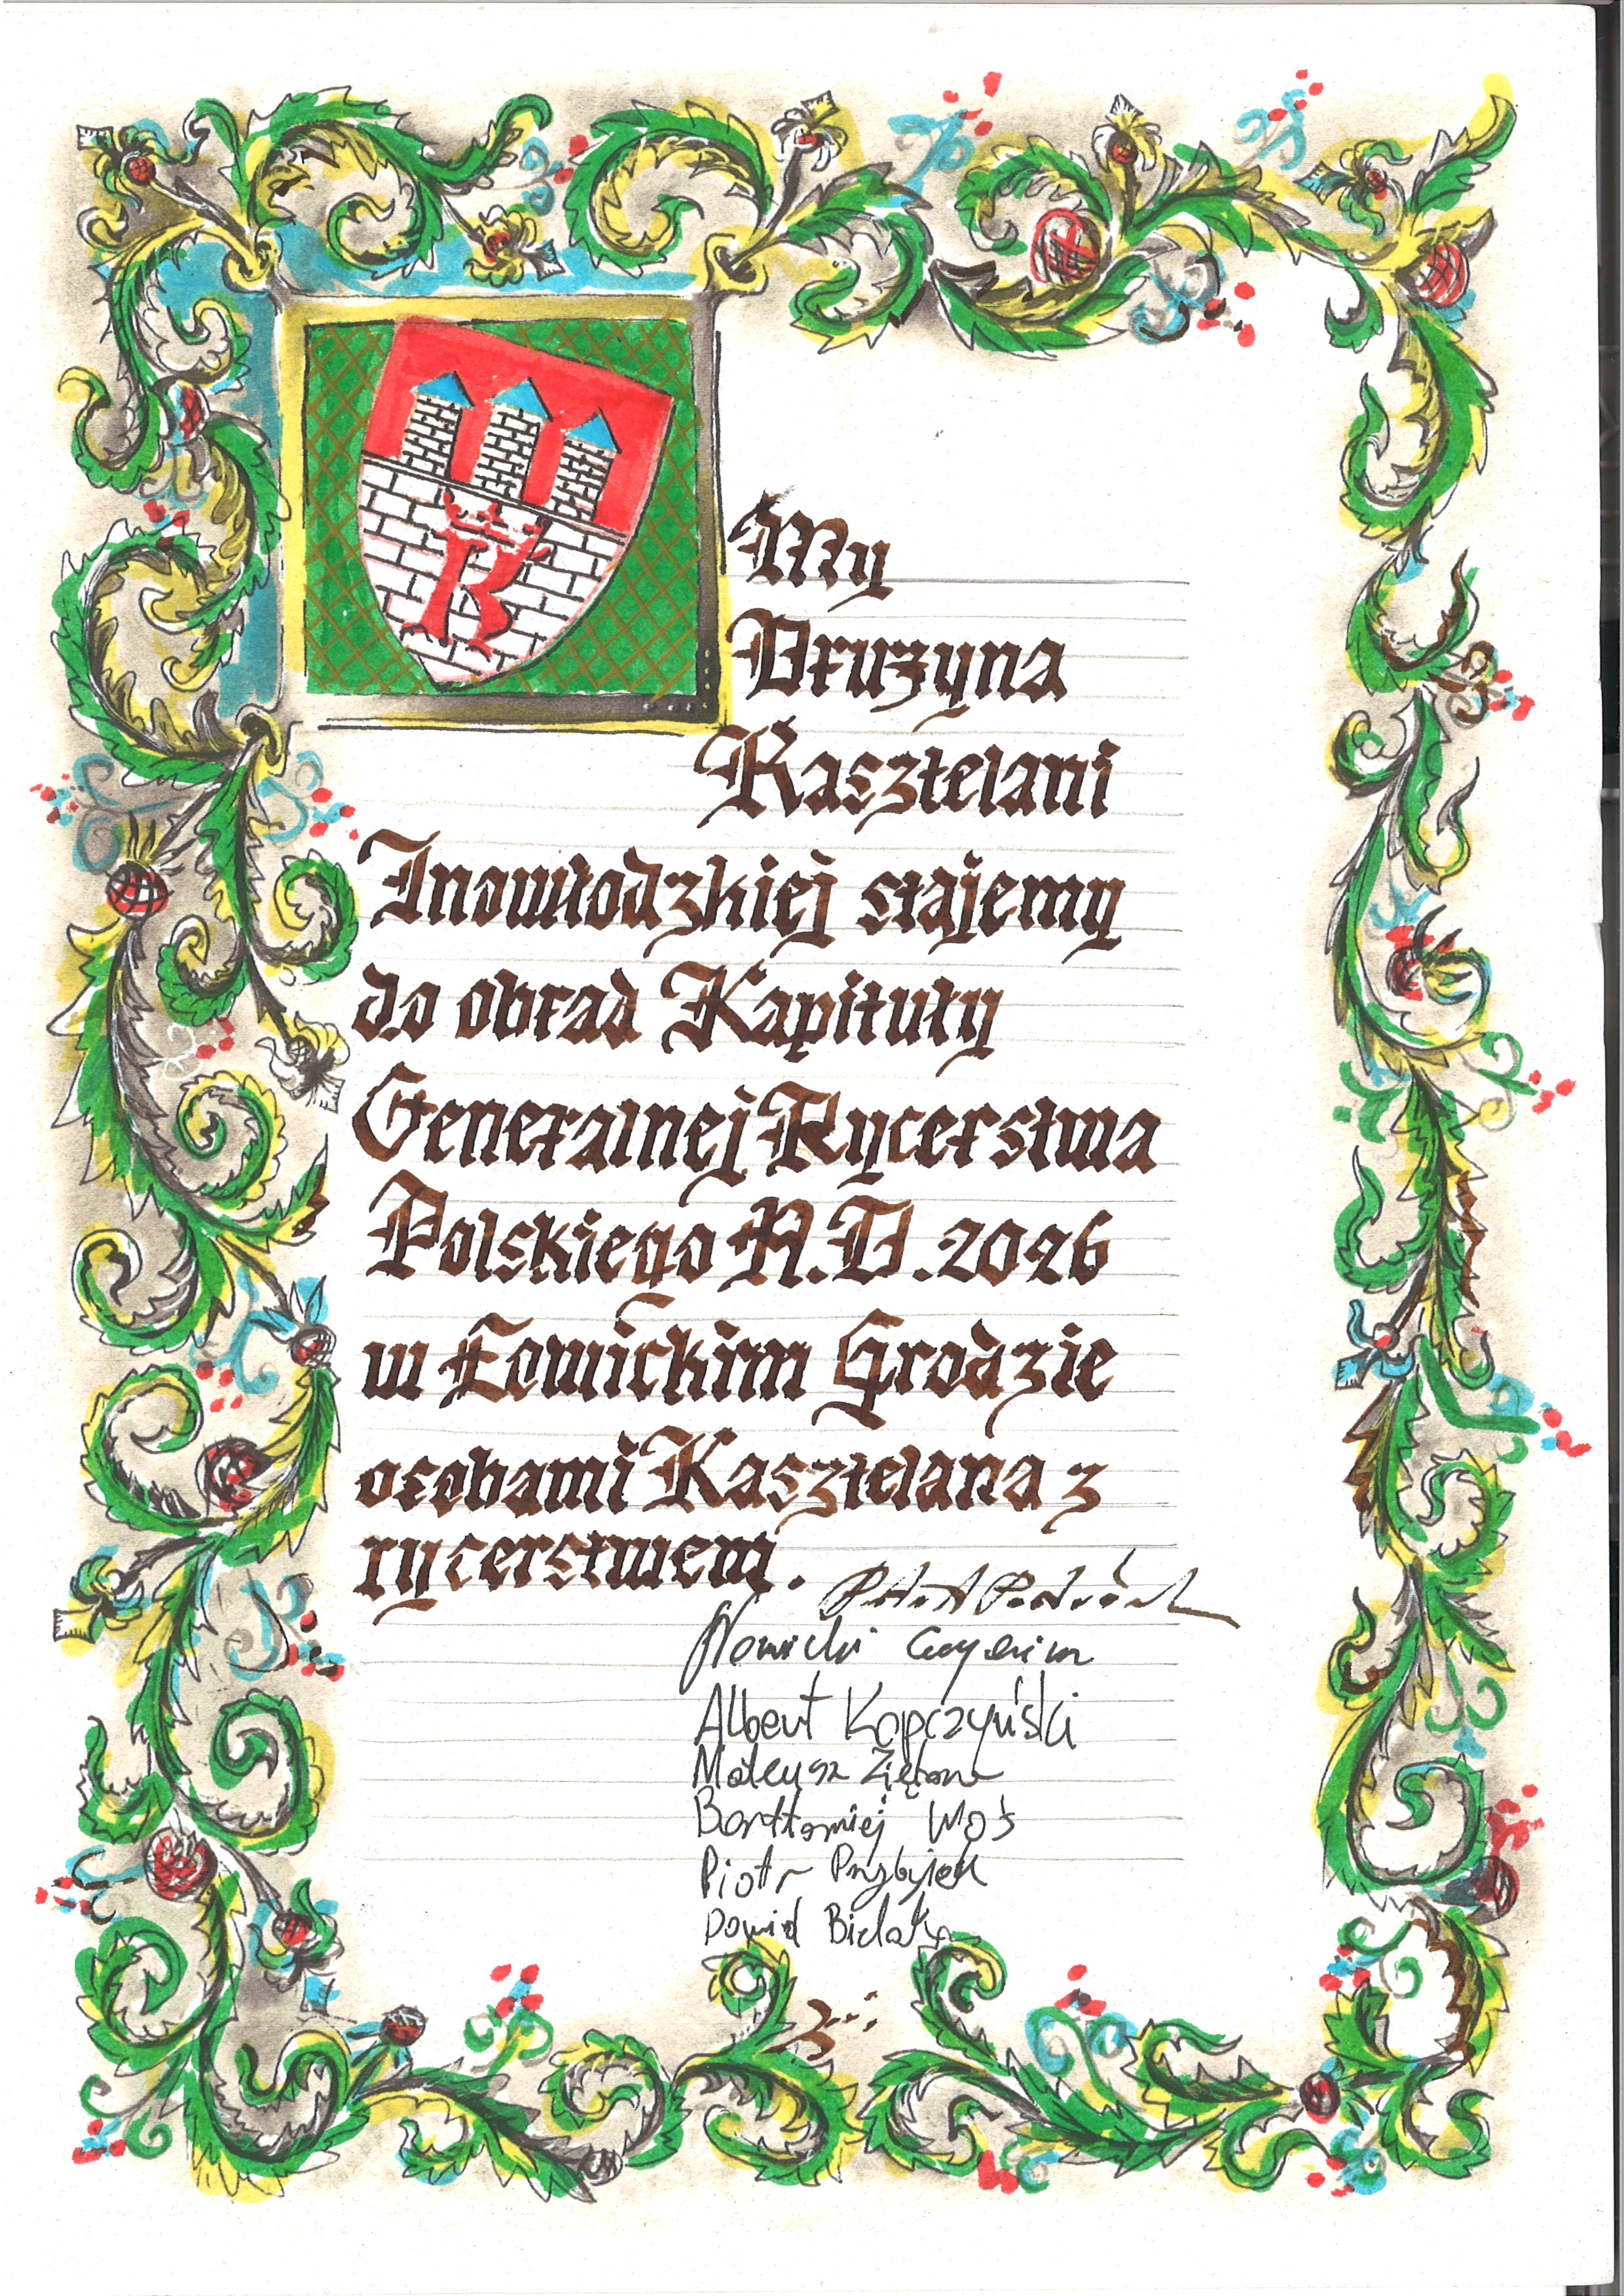 My
Drużyna
Kasztelani
Inowłodzkiej stajemy
do obrad Kapituły
Generalnej Rycerstwa
Polskiego A.D. 2026
w Łowickim Grodzie
osobami Kasztelana z
rycerstwem.
Nowicki
Albert Kopczyński
Mateusz
Bartłomiej Woś
Piotr Przybyłek
Dawid